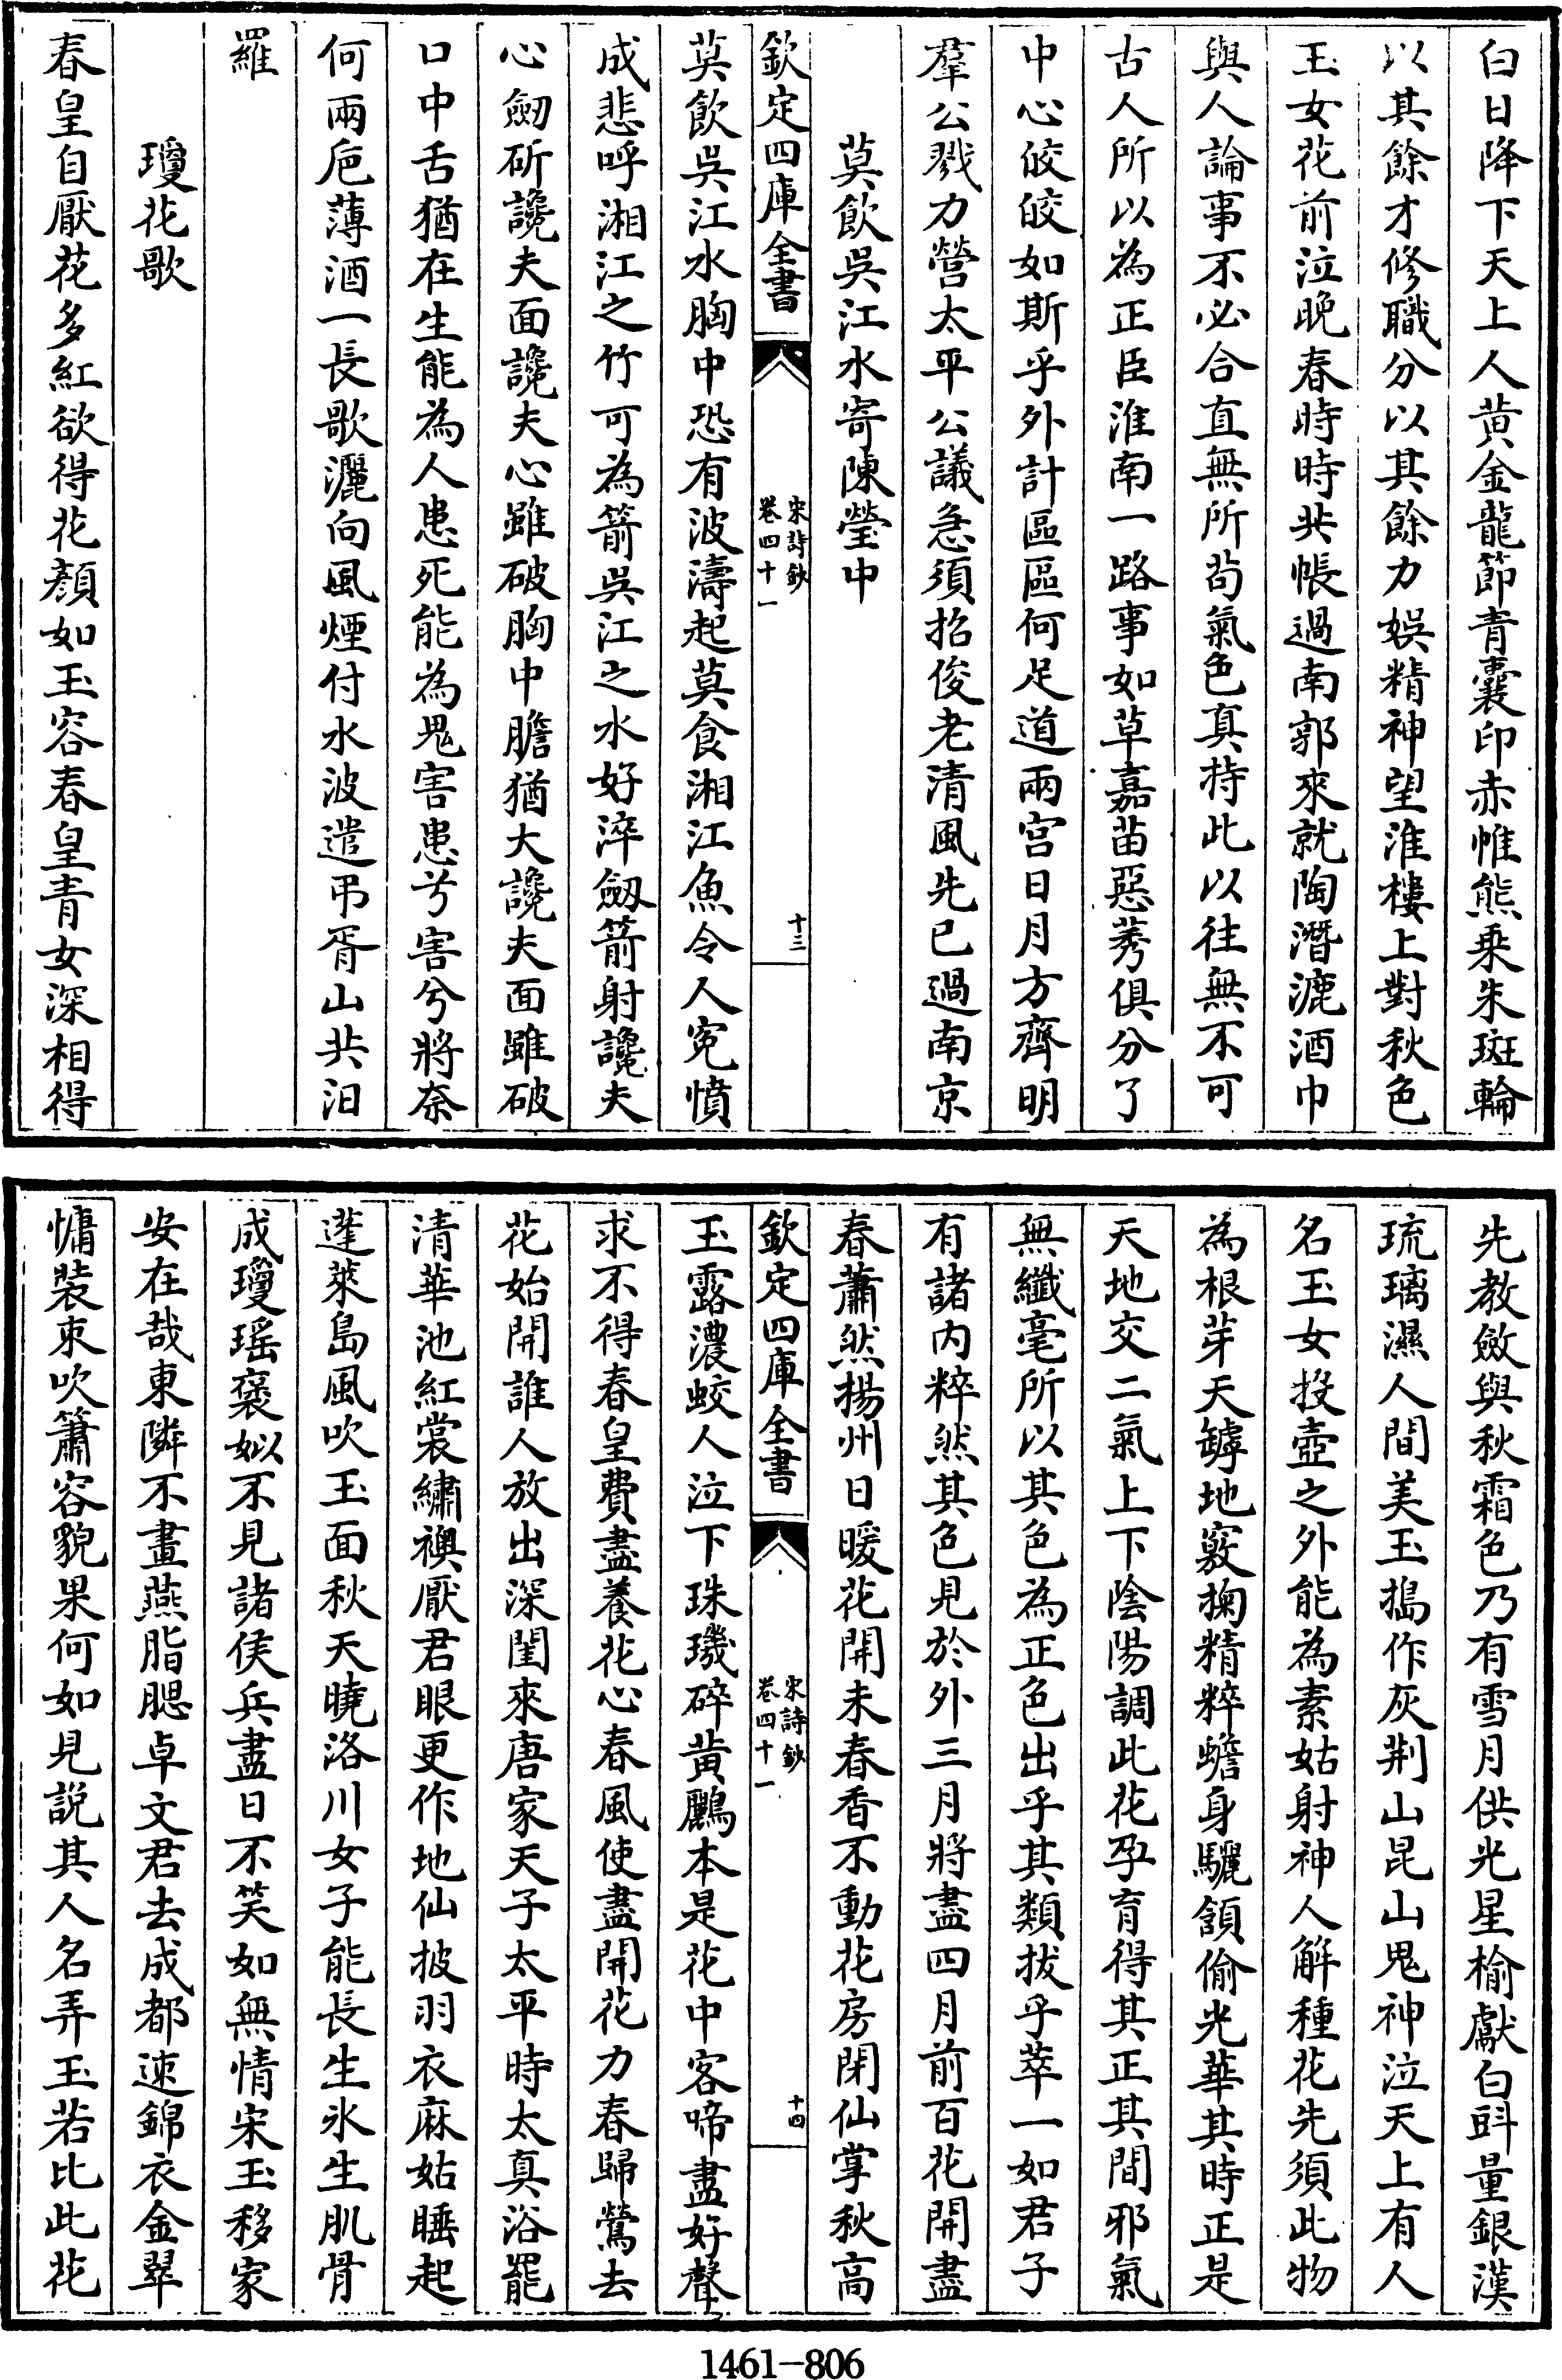 白日降下天上人黄金龍節青囊印赤帷熊乘朱斑輪
以其餘才修職分以其餘力娛精神望淮樓上對秋色
玉女花前泣晚春時時共帳過南郭來就陶潛漉酒巾
與人論事不必合直無所茍氣色真持此以往無不可
古人所以為正臣淮南一路事如草嘉苗惡莠俱分了
中心皎皎如斯乎外計區區何足道兩宫日月方齊明
羣公戮力營太平公議急須招俊老清風先已過南京
莫飲吳江水寄陳瑩中
欽定四庫全書
宋詩鈔
卷四十一
十三
莫飲吳江水胸中恐有波濤起莫食湘江魚令人寃憤
成悲呼湘江之竹可為箭吳江之水好淬劒箭射讒夫
心劒斫讒夫面讒夫心雖破胸中膽猶大讒夫面雖破
口中舌猶在生能為人患死能為鬼害患兮害兮將奈
何兩巵薄酒一長歌灑向風煙付水波遣弔胥山共汨
羅
瓊花歌
春皇自厭花多紅欲得花顔如玉容春皇青女深相得
先教斂與秋霜色乃有雪月供光星榆獻白㪷量銀漢
琉璃濕人間美玉搗作灰荆山昆山鬼神泣天上有人
名玉女投壺之外能為素姑射神人解種花先須此物
為根芽天罅地竅掬精粹蟾身驪頷偷光華其時正是
天地交二氣上下陰陽調此花孕育得其正其間邪氣
無纖毫所以其色為正色出乎其類拔乎萃一如君子
有諸内粹然其色見於外三月將盡四月前百花開盡
春蕭然揚州日暖花開未春香不動花房閉仙掌秋高
欽定四庫全書
宋詩鈔
卷四十一
十四
玉露濃蛟人泣下珠璣碎黄鸝本是花中客啼盡好聲
求不得春皇費盡養花心春風使盡開花力春歸鶯去
花始開誰人放出深閨來唐家天子太平時太真浴罷
清華池紅裳繡襖厭君眼更作地仙披羽衣麻姑睡起
蓬萊島風吹玉面秋天曉洛川女子能長生氷生肌骨
成瓊瑶褒姒不見諸侯兵盡日不笑如無情宋玉移家
安在哉東隣不畫燕脂腮卓文君去成都速錦衣金翠
慵裝束吹簫容貌果何如見説其人名弄玉若比此花
1461-806